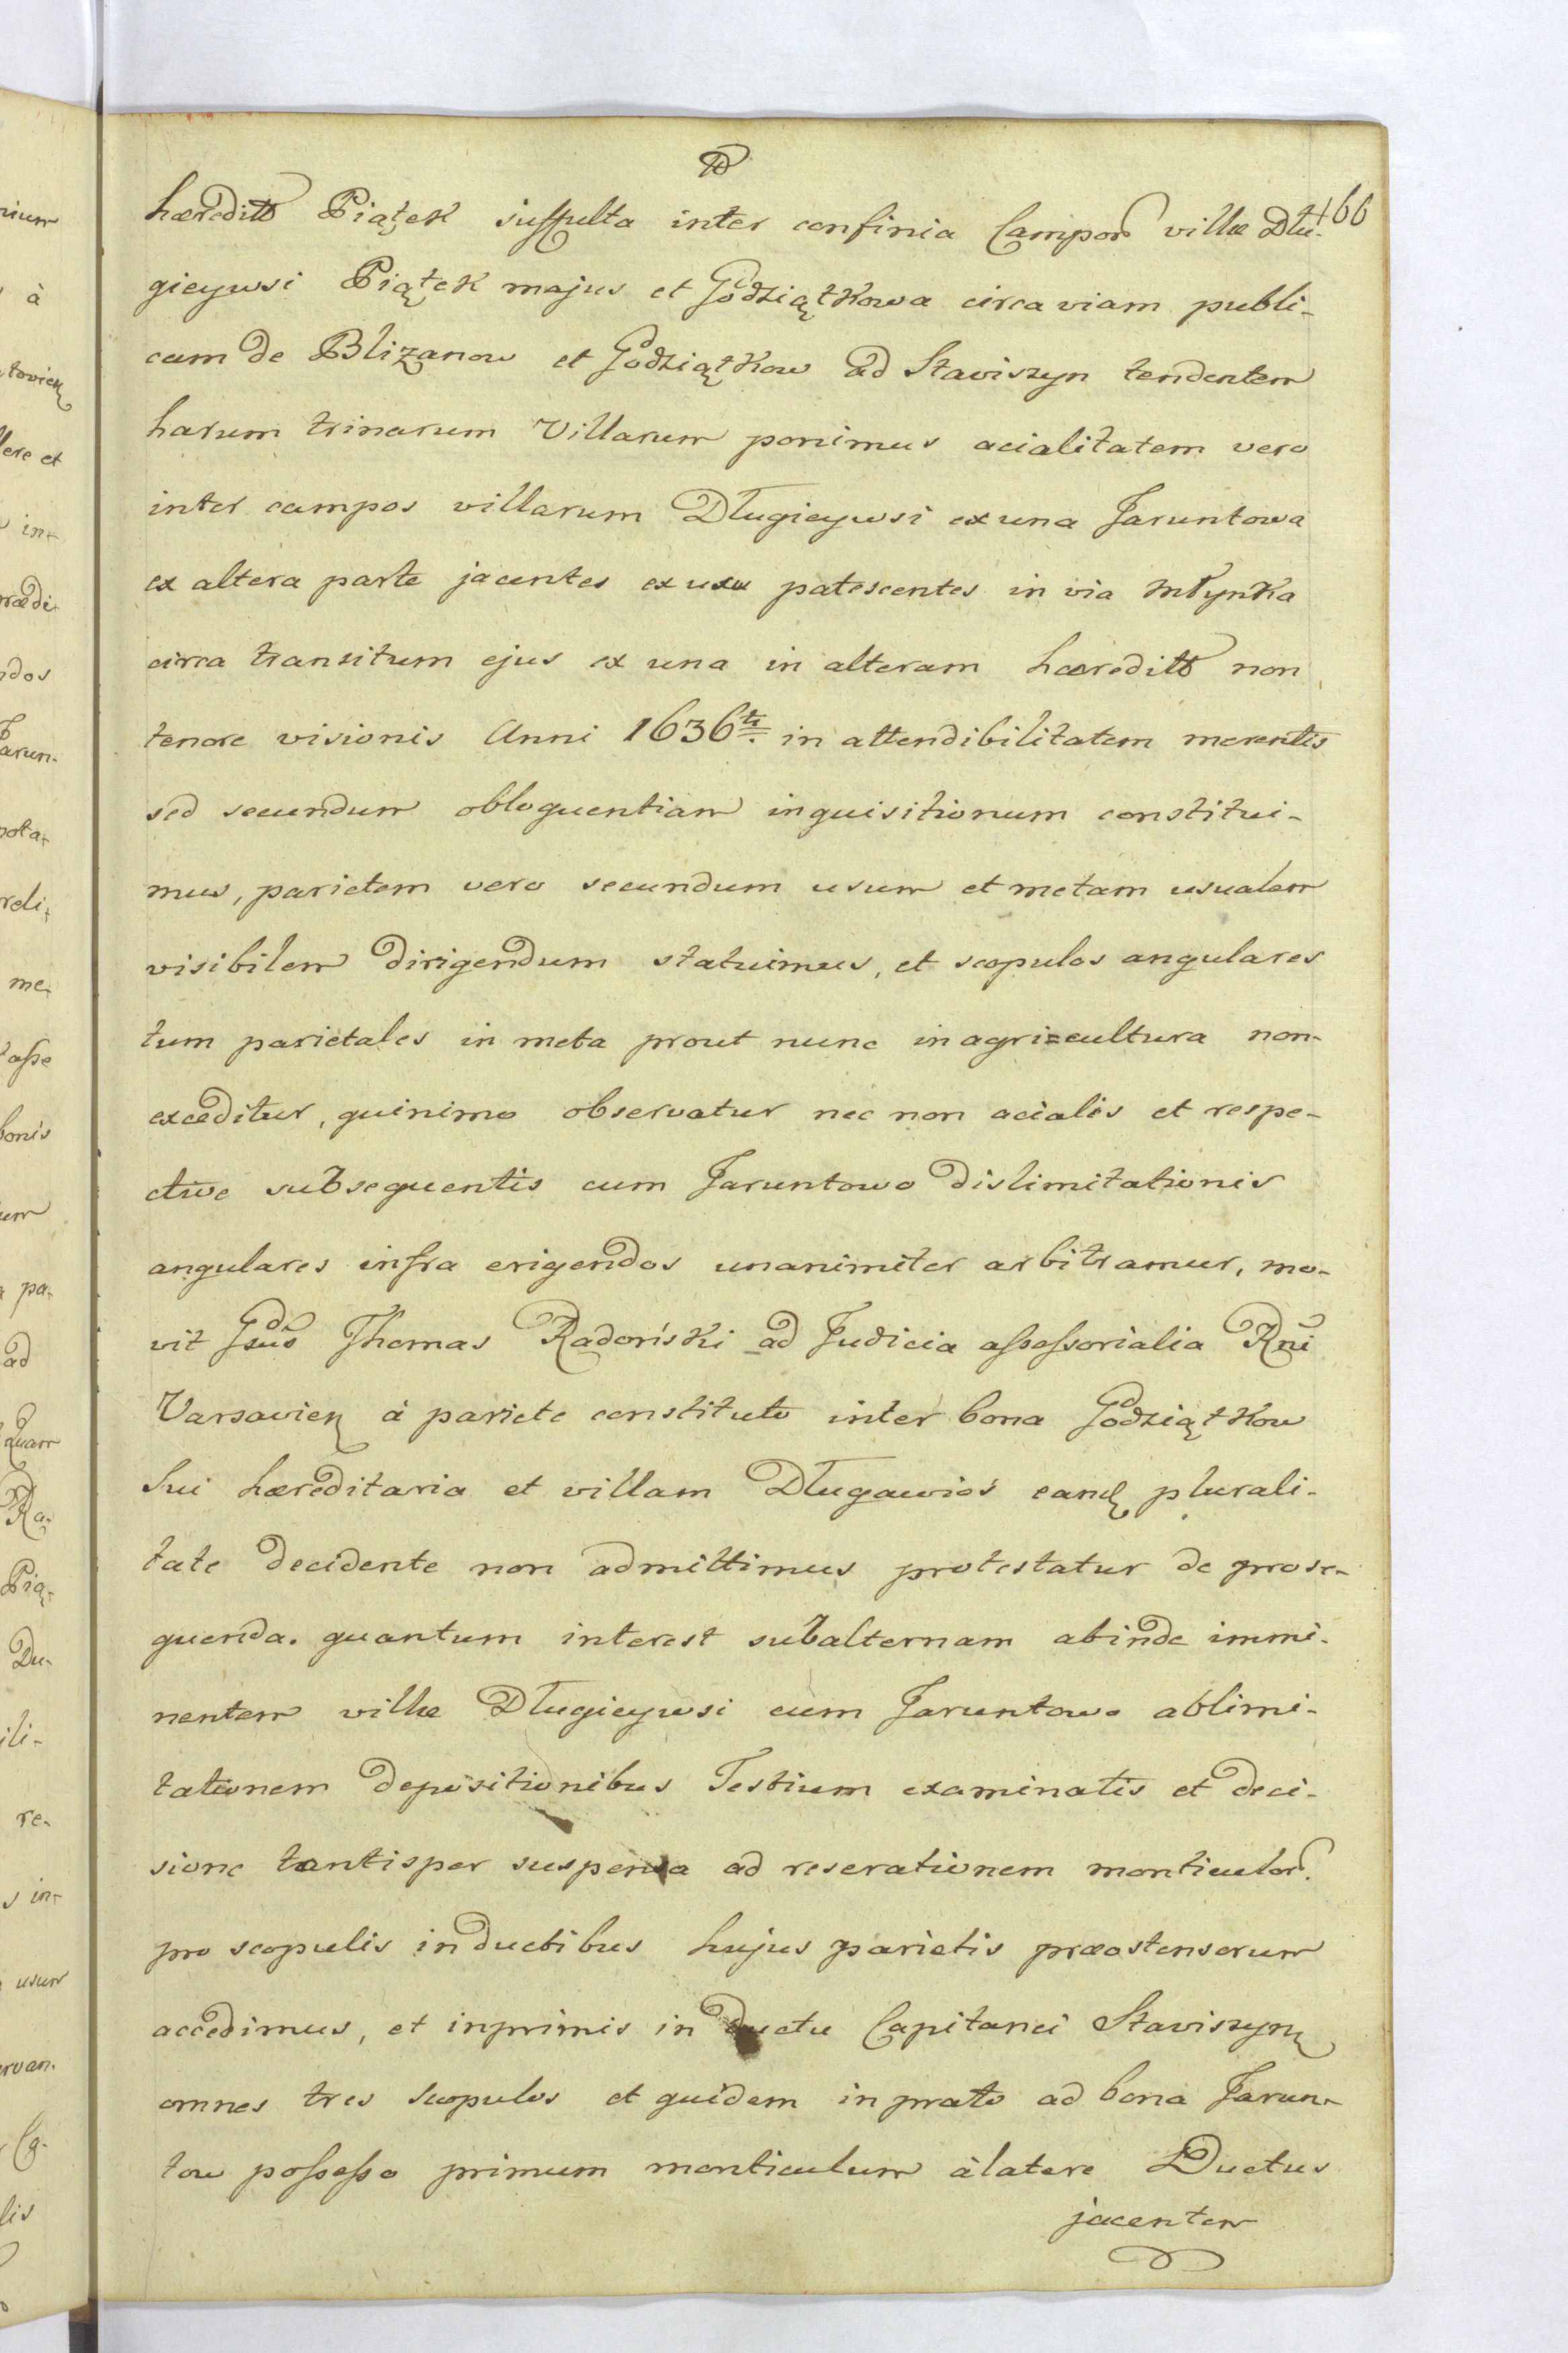 166
hæreditt Piątek suffulta inter confinia Campor villæ Dłu-
gieywsi Piątek majus et Godziątkowa circa viam publi-
cam de Blizanow et Godziątkow ad Staviszyn tendentem
harum trinarum Villarum ponimus acialitatem vero
inter campos villarum Długieywsi ex una Jaruntowa
ex altera parte jacentes ex usu patescentes in via Młynka
circa transitum ejus ex una in alteram hæreditt non
tenore visionis Anni 1636ti. in attendibilitatem merentis
sed secundum obloquentiam inquisitionum constitui-
mus, parietem vero secundum usum et metam usualem
visibilem dirigendum statuimus, et scopulos angulares
tum parietales in meta prout nunc in agri=cultura non-
exceditur, quinimo observatur nec non acialis et respe-
ctive subsequentis cum Jaruntowo dislimitationis
angulares infra erigendos unanimiter arbitramur, mo-
vit Gsus Thomas Radoński ad Judicia assessorialia Rni
Varsavien à pariete constituto inter bona Godziątkow
sui hæreditaria et villam Długawieś eand plurali-
tate decidente non admittimus protestatur de prose-
quenda. quantum interest subalternam abinde immi-
nentem villæ Długieywsi cum Jaruntowo ablimi-
tationem depositionibus Testium examinatis et deci-
sione tantisper suspensa ad reserationem monticulor.
pro scopulis inductibus hujus parietis præostensorum
accedimus, et inprimis in ductu Capitanei Staviszyn
omnes tres scopulos et quidem in prato ad bona Jarun-
tow possesso primum monticulum à latere Ductus
jacentem